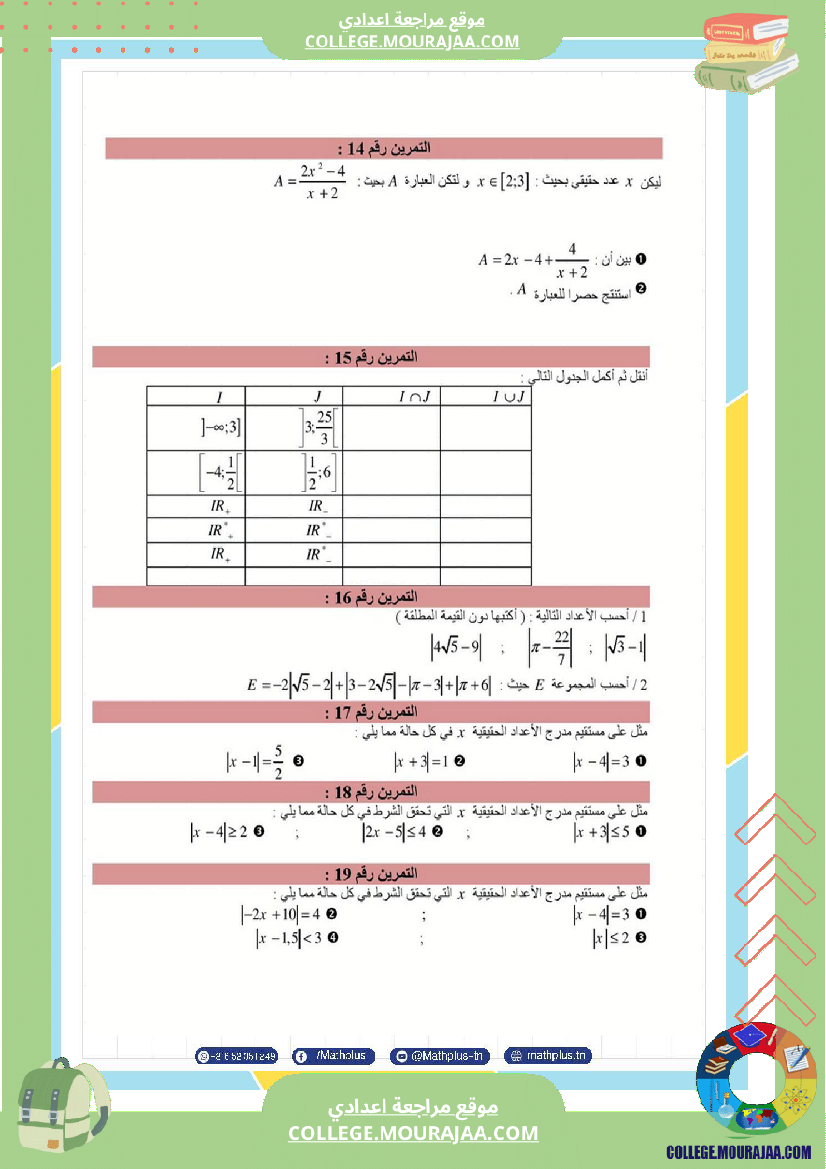 موقع مراجعة اعدادي
COLLEGE.MOURAJAA.COM
التمرين رقم 14 :
ليكن x عدد حقيقي بحيث : x ∈ [2;3] و لتكن العبارة A بحيث : A = (2x² − 4)/(x + 2)
❶ بين أن : A = 2x − 4 + 4/(x + 2)
❷ استنتج حصرا للعبارة A .
التمرين رقم 15 :
أنقل ثم أكمل الجدول التالي :
I J I ∩ J I ∪ J
]−∞;3] ]3;25/3[
[−4;1/2[ ]1/2;6]
IR₊ IR₋
IR*₊ IR*₋
IR₊ IR*₋
التمرين رقم 16 :
1 / أحسب الأعداد التالية : ( أكتبها دون القيمة المطلقة )
|√3 −1| ; |π − 22/7| ; |4√5 − 9|
2 / أحسب المجموعة E حيث : E = −2|√5 − 2| + |3 − 2√5| − |π − 3| + |π + 6|
التمرين رقم 17 :
مثل على مستقيم مدرج الأعداد الحقيقية x في كل حالة مما يلي :
❶ |x − 4| = 3 ❷ |x + 3| = 1 ❸ |x − 1| = 5/2
التمرين رقم 18 :
مثل على مستقيم مدرج الأعداد الحقيقية x التي تحقق الشرط في كل حالة مما يلي :
❶ |x + 3| ≤ 5 ; ❷ |2x − 5| ≤ 4 ; ❸ |x − 4| ≥ 2
التمرين رقم 19 :
مثل على مستقيم مدرج الأعداد الحقيقية x التي تحقق الشرط في كل حالة مما يلي :
❶ |x − 4| = 3 ; ❷ |−2x + 10| = 4
❸ |x| ≤ 2 ; ❹ |x − 1,5| < 3
/Mathplus
@Mathplus-tn
mathplus.tn
موقع مراجعة اعدادي
COLLEGE.MOURAJAA.COM
COLLEGE.MOURAJAA.COM